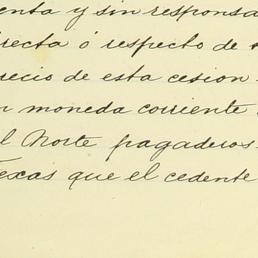 enta y sin responsa
irecta ó respecto de
recio de esta cesion
n moneda corriente
l Norte pagaderos
Texas que el cedente